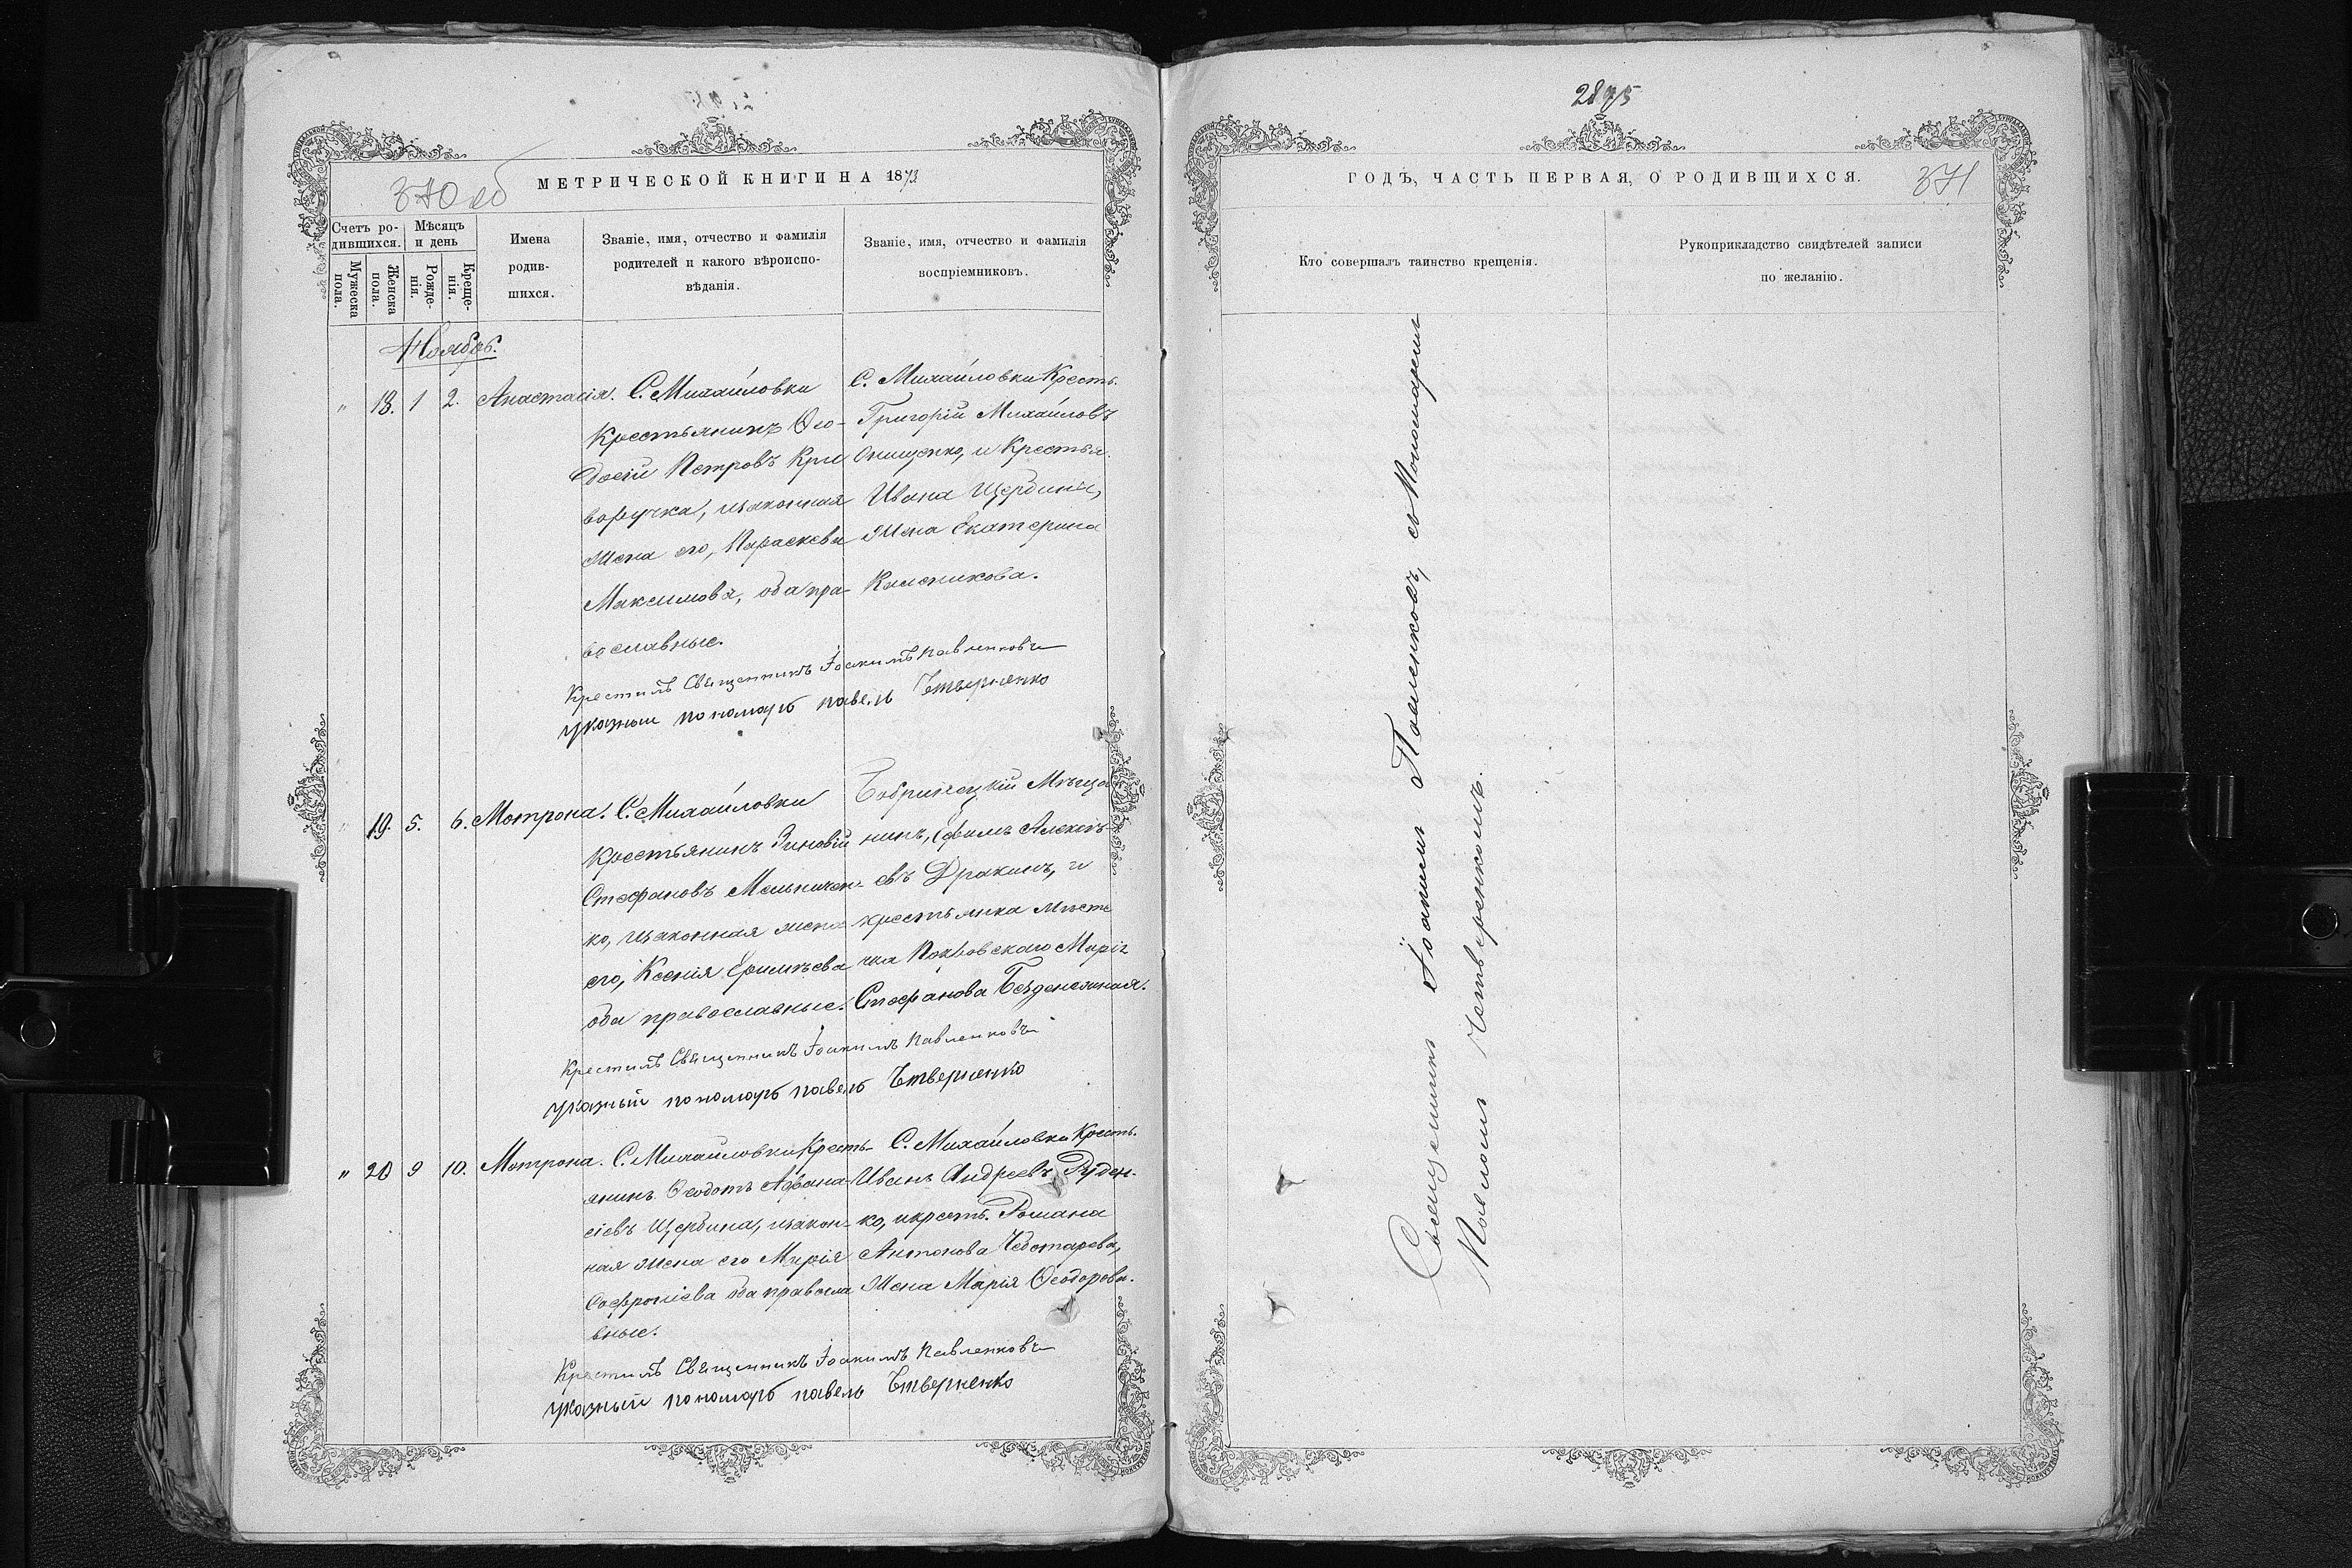 370 об
МЕТРИЧЕСКОЙ КНИГИ НА 1873
Счетъ ро-
дившихся.
Мужеска
пола.
Женска
пола.
Мѣсяцъ
и день
Рожде-
нія.
Креще-
нія.
Имена
родив-
шихся.
Званіе, имя, отчество и фамилія
родителей и какого вѣроиспо-
вѣданія.
Званіе, имя, отчество и фамилія
воспріемниковъ.
Ноябрь.
" 18. 1 2. Анастасія.
С. Михайловки
Крестьянинъ Ѳео-
досій Петровъ Кри
воручка, изаконная
жена его, Параскева
Максимова, оба пра-
вославные.
С. Михайловки Кресть.
Григорій Михайловъ
Онищенко, и Крестья.
Ивана Щербины,
жена Екатерина
Каленикова.
Крестилъ Священникъ Іоакимъ Павленковъ
указный пономарь павелъ Четверненко
" 19. 5. 6. Мотрона.
С. Михайловки
Крестьянинъ Зиновій
Стефановъ Мельничен-
ко, изаконная жена
его, Ксенія Ефимѣева
оба православные.
Бобринецкій Мѣща
нинъ, Ефимъ Алексѣ-
евъ Дракинъ, и
крестьянка мѣсте
чка Покровскаго Марія
Стефанова Безденежная.
Крестилъ Священникъ Іоакимъ Павленковъ
указный пономарь павелъ Четверненко
" 20 9 10. Мотрона.
С. Михайловки Кресть-
янинъ Ѳеодотъ Афана-
сіевъ Щербина, изакон-
ная жена его Марія
Софроніева оба правосла
вные.
С. Михайловки Кресть.
Иванъ Андреевъ Руден-
ко, икресть. Романа
Антонова Чеботарева,
жена Марія Ѳеодорова.
Крестилъ Священникъ Іоакимъ Павленковъ
указный пономарь павелъ Четверненко
2875
ГОДЪ, ЧАСТЬ ПЕРВАЯ, О РОДИВШИХСЯ.
371
Кто совершалъ таинство крещенія.
Рукоприкладство свидѣтелей записи
по желанію.
Священникъ Іоакимъ Павленковъ, съ Пономаремъ
Павломъ Четверенкомъ.